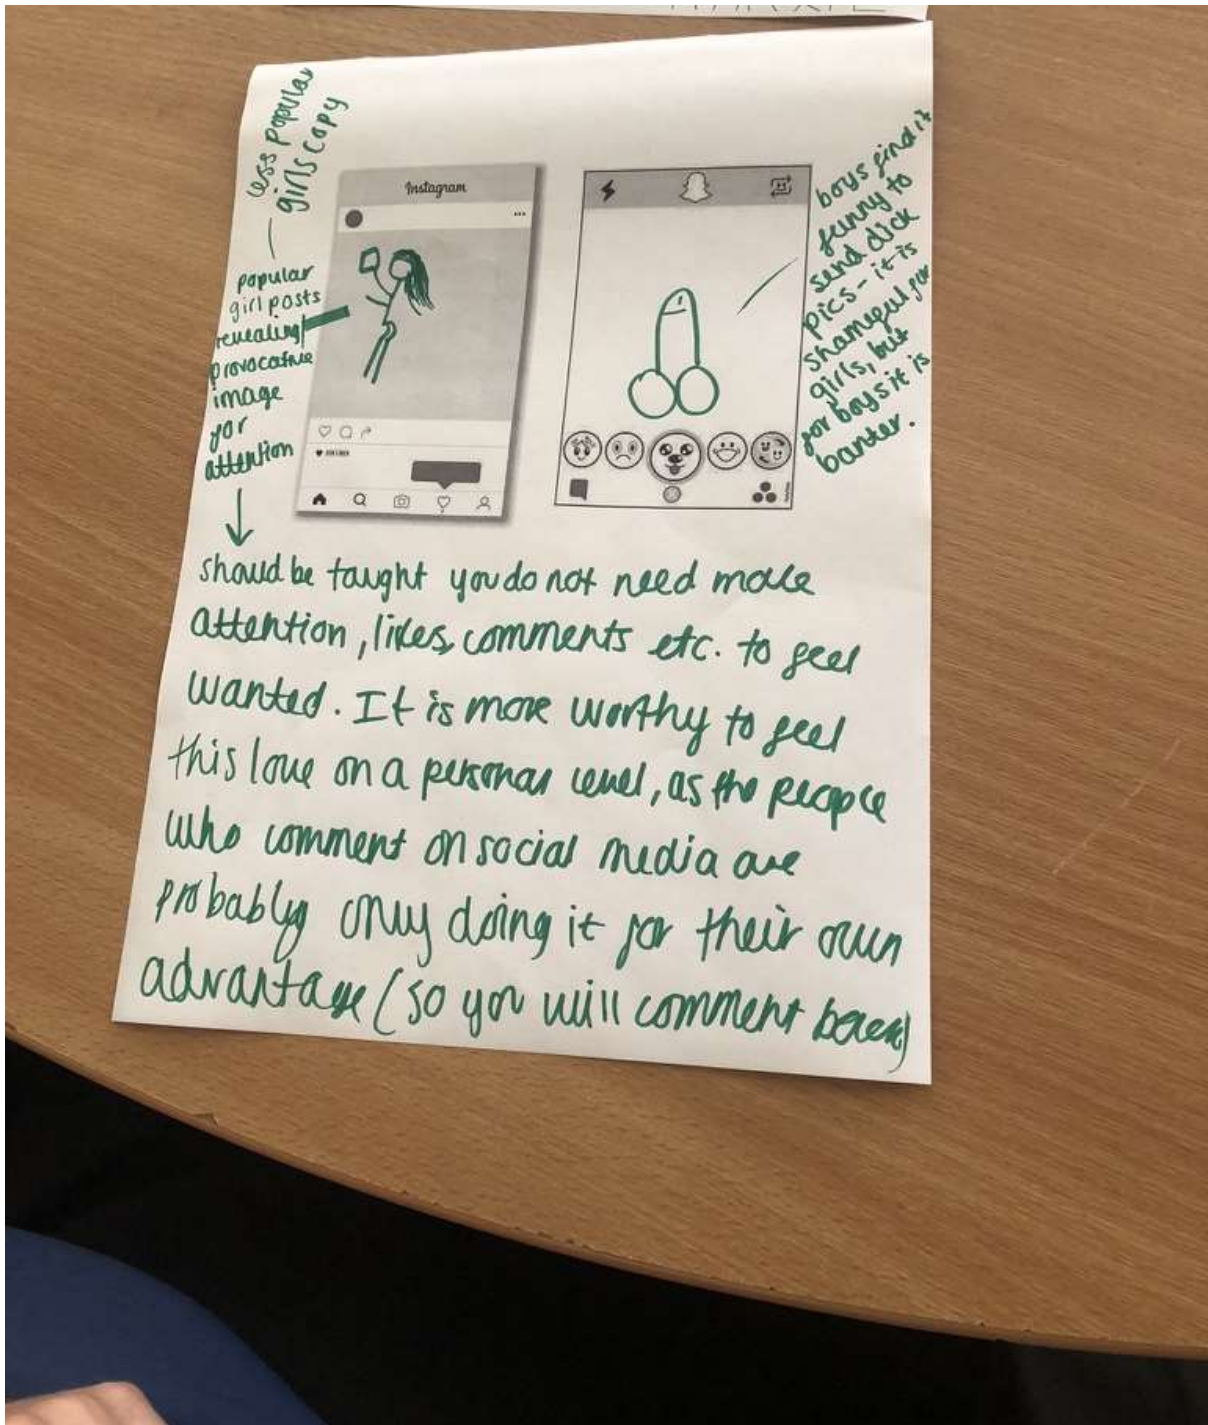 less popular
girls copy
popular
girl posts
revealing/
provocative
image
for
attention
Instagram
boys find it
funny to
send dick
pics - it is
shameful for
girls, but
for boys it is
banter.
should be taught you do not need more
attention, likes, comments etc. to feel
wanted. It is more worthy to feel
this love on a personal level, as the people
who comment on social media are
probably only doing it for their own
advantage (so you will comment back)